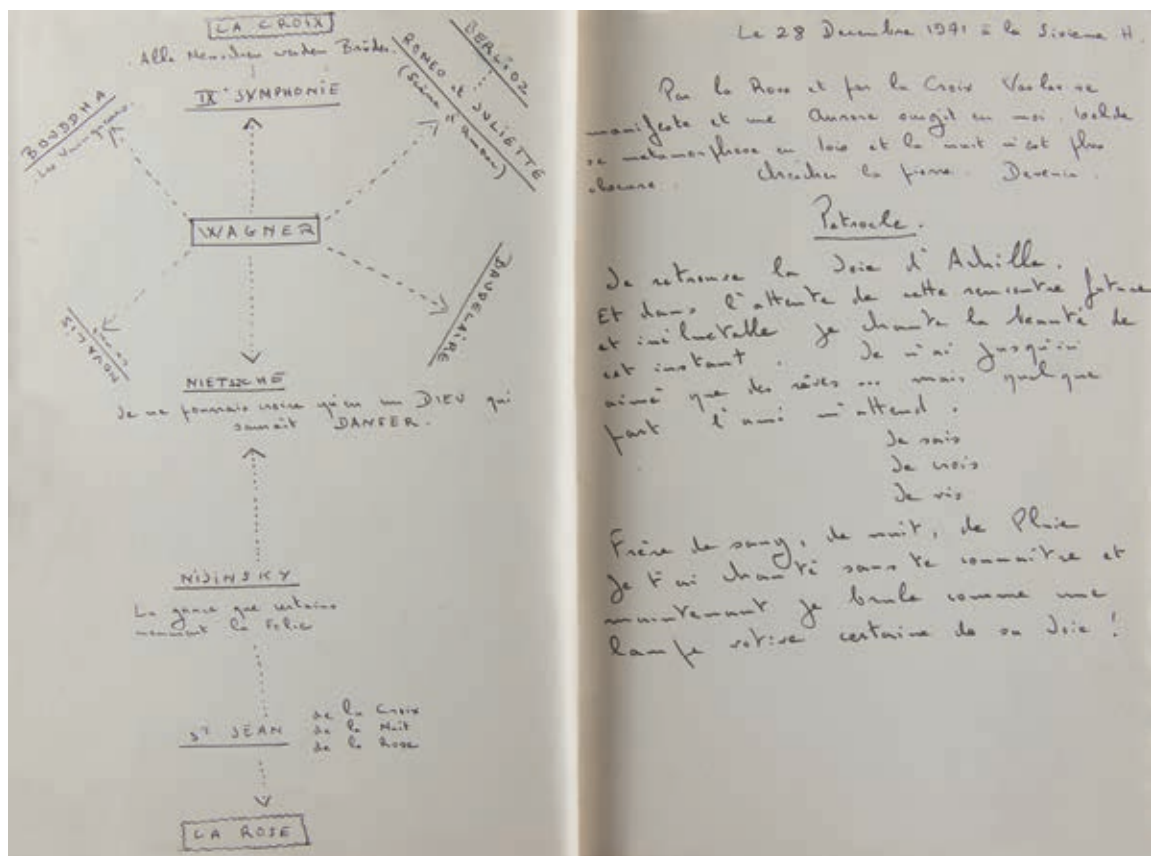 LA CROIX
Alle Menschen werden Brüder.
IX° SYMPHONIE
BERLIOZ
ROMEO et JULIETTE
(Scène d'amour)
BOUDDHA
Les Vainqueurs.
WAGNER
NOVALIS
BAUDELAIRE
NIETSZCHÉ
Je ne pourrais croire qu'en un DIEU qui
saurait DANSER.
NIJINSKY
La grace que certains
nomment la Folie
ST JEAN
de la Croix
de la Nuit
de la Rose
LA ROSE
Le 28 Decembre 1971 à la Sixieme H.
Par la Rose et par la Croix Vaslav se
manifeste et une Aurore surgit en moi. Isolde
se metamorphose en Joie et la nuit n'est plus
obscure. Chercher la pierre. Devenir.
Patrocle.
Je retrouve la Joie d'Achille.
Et dans l'attente de cette rencontre future
et inéluctable je chante la beauté de
cet instant. Je n'ai jusqu'ici
aimé que des rêves... mais quelque
part l'ami m'attend.
Je sais
Je crois
Je vis
Frère de sang, de nuit, de Pluie
Je t'ai chanté sans te connaitre et
maintenant je brule comme une
lampe votive certaine de sa Joie!